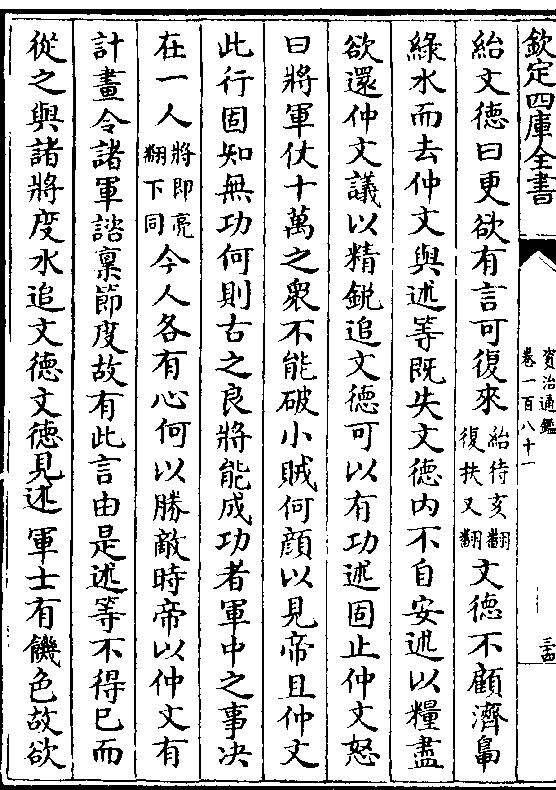 欽定四庫全書
資治通鑑
卷一百八十一
三十四
紿文德曰更欲有言可復來紿待亥翻復扶又翻文德不顧濟鼂
綠水而去仲文與述等既失文德内不自安述以糧盡
欲還仲文議以精鋭追文德可以有功述固止仲文怒
曰將軍仗十萬之衆不能破小賊何顔以見帝且仲文
此行固知無功何則古之良將能成功者軍中之事决
在一人將即亮翻下同今人各有心何以勝敵時帝以仲文有
計畫令諸軍諮稟節度故有此言由是述等不得已而
從之與諸將度水追文德文德見述軍士有饑色故欲